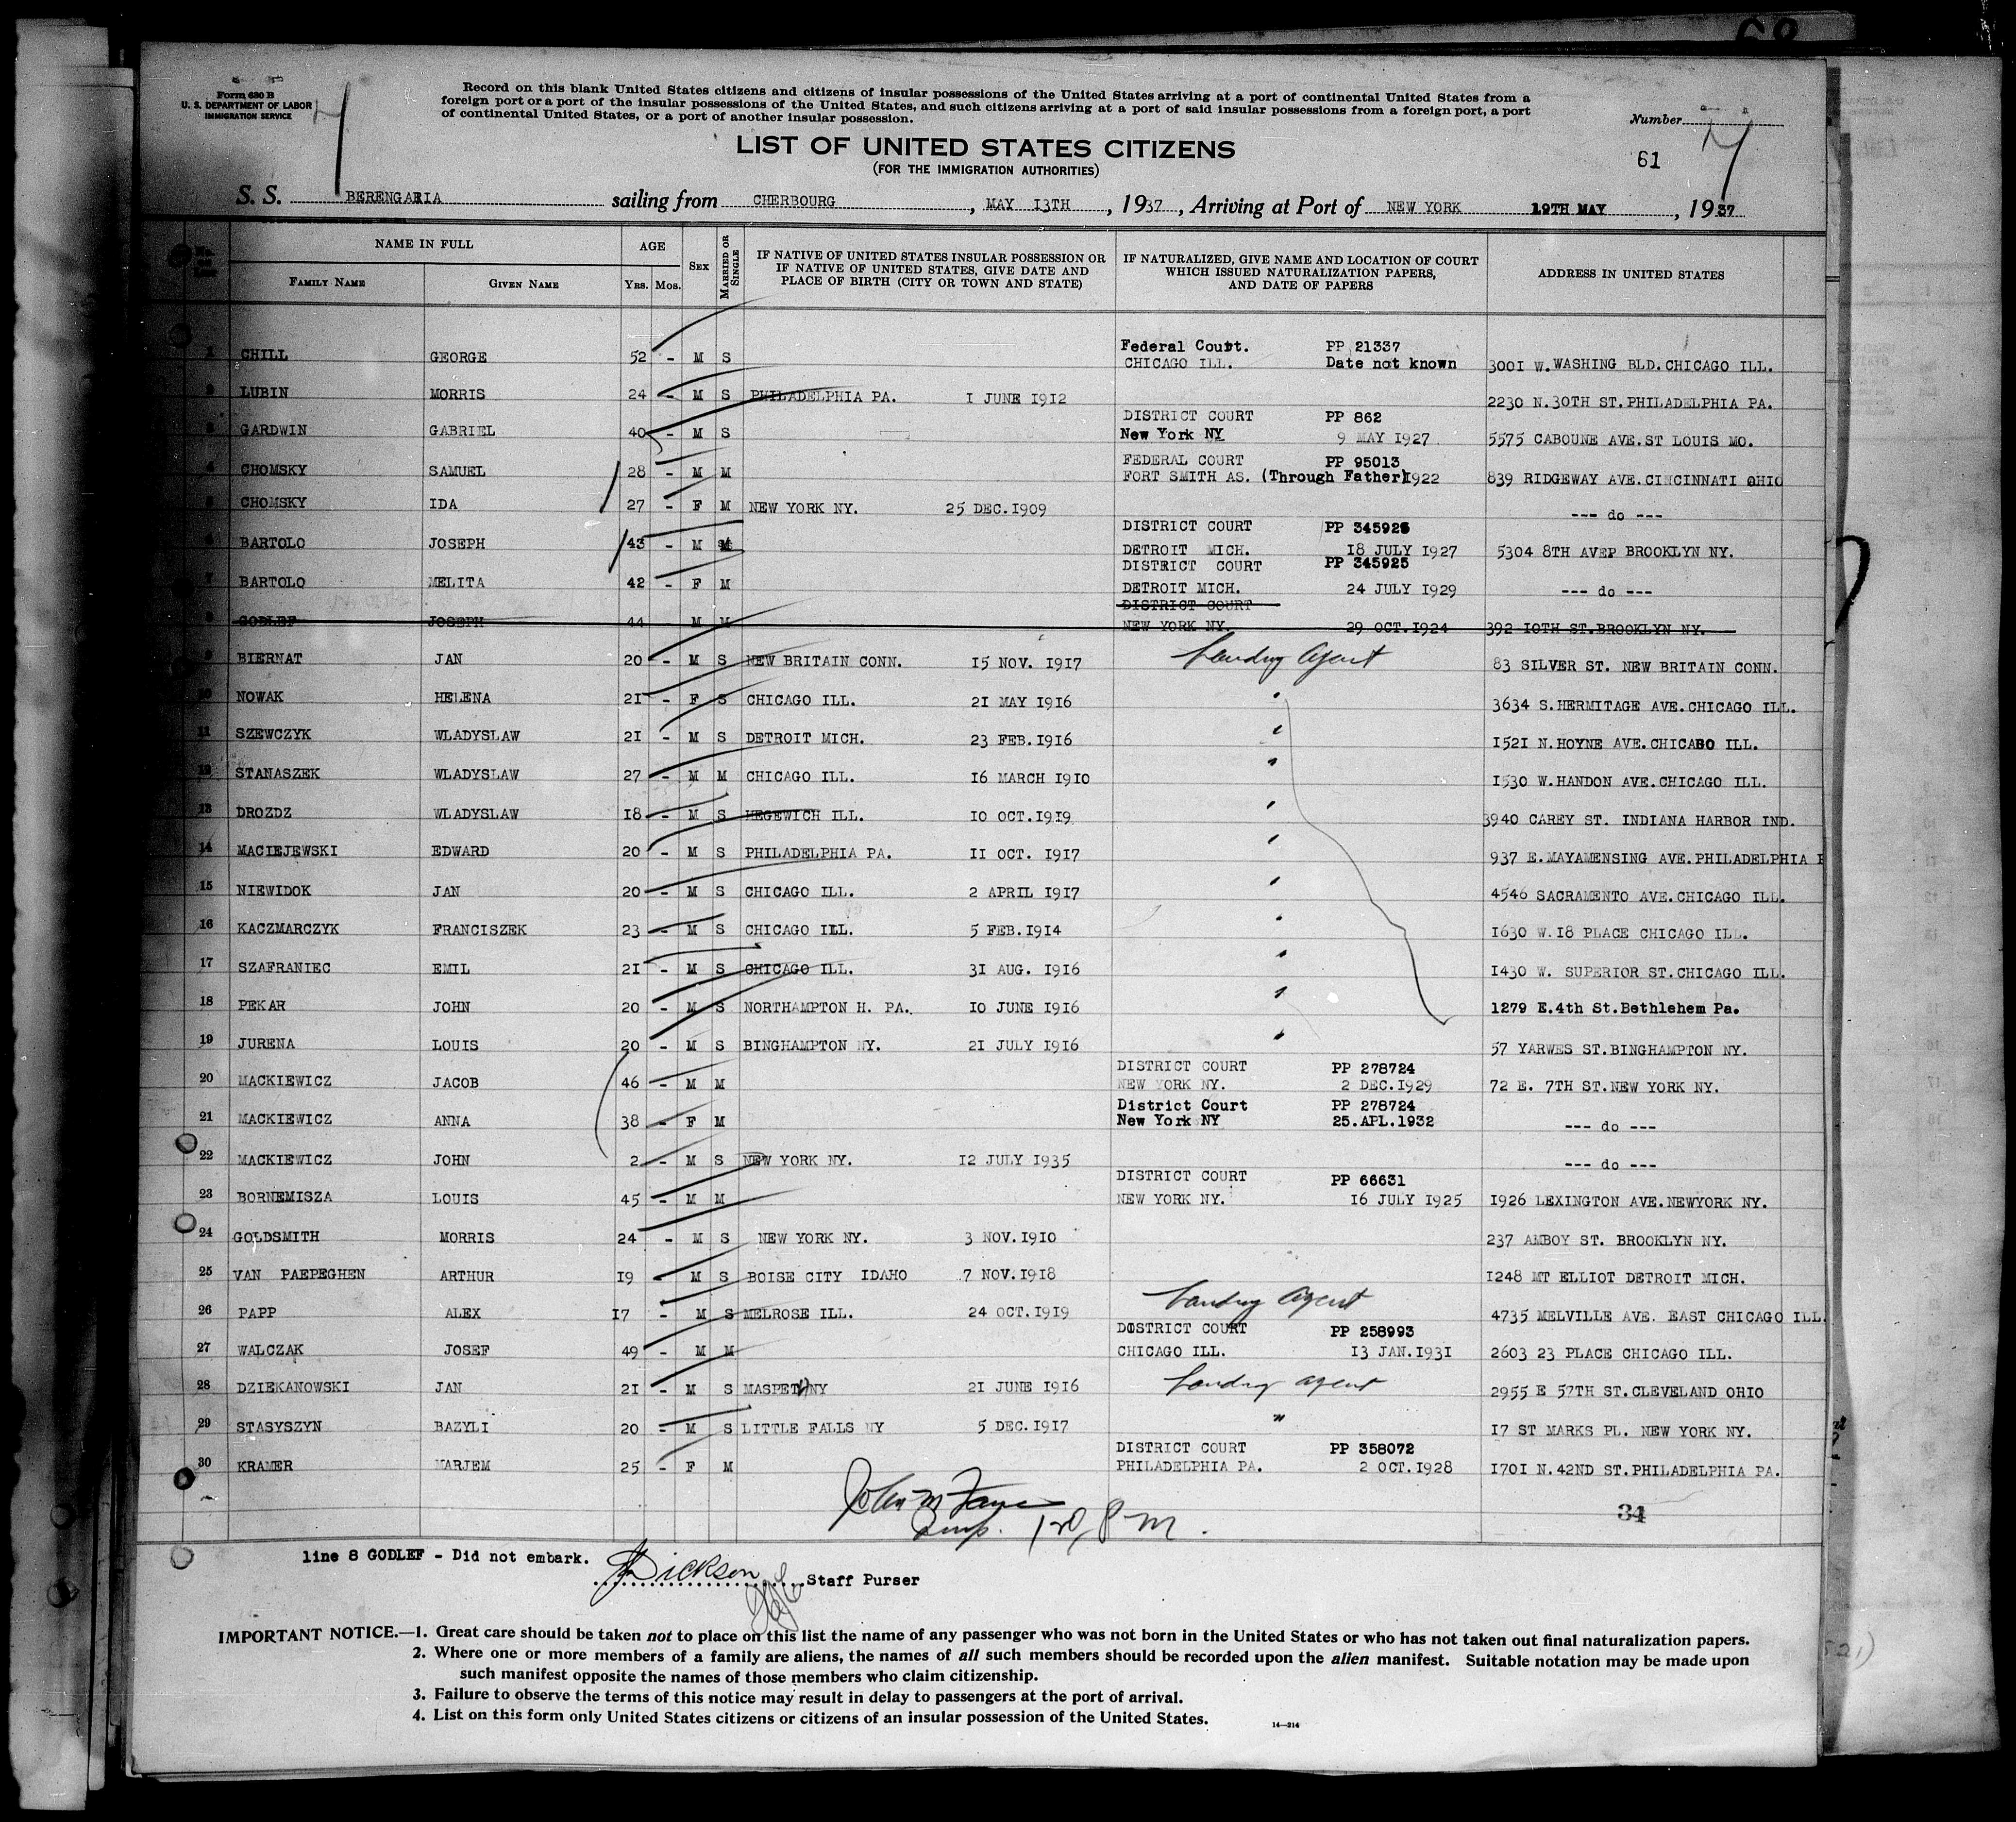 Form 630 B
U. S. DEPARTMENT OF LABOR
IMMIGRATION SERVICE
Record on this blank United States citizens and citizens of insular possessions of the United States arriving at a port of continental United States from a
foreign port or a port of the insular possessions of the United States, and such citizens arriving at a port of said insular possessions from a foreign port, a port
of continental United States, or a port of another insular possession.
Number
LIST OF UNITED STATES CITIZENS
(FOR THE IMMIGRATION AUTHORITIES)
61
S. S. BERENGARIA sailing from CHERBOURG, MAY 13TH, 1937, Arriving at Port of NEW YORK 19TH MAY, 1937
NAME IN FULL AGE SEX MARRIED OR SINGLE IF NATIVE OF UNITED STATES INSULAR POSSESSION OR IF NATIVE OF UNITED STATES, GIVE DATE AND PLACE OF BIRTH (CITY OR TOWN AND STATE) IF NATURALIZED, GIVE NAME AND LOCATION OF COURT WHICH ISSUED NATURALIZATION PAPERS, AND DATE OF PAPERS ADDRESS IN UNITED STATES
FAMILY NAME GIVEN NAME YRS. MOS.
Federal Court. PP 21337
1 CHILL GEORGE 52 - M S CHICAGO ILL. Date not known 3001 W. WASHING BLD. CHICAGO ILL.
2 LUBIN MORRIS 24 - M S PHILADELPHIA PA. 1 JUNE 1912 2230 N.30TH ST.PHILADELPHIA PA.
DISTRICT COURT PP 862
3 GARDWIN GABRIEL 40 - M S New York NY 9 MAY 1927 5575 CABOUNE AVE.ST LOUIS MO.
FEDERAL COURT PP 95013
4 CHOMSKY SAMUEL 28 - M M FORT SMITH AS. (Through Father) 1922 839 RIDGEWAY AVE.CINCINNATI OHIO
5 CHOMSKY IDA 27 - F M NEW YORK NY. 25 DEC.1909 --- do ---
DISTRICT COURT PP 345925
6 BARTOLO JOSEPH 43 - M M DETROIT MICH. 18 JULY 1927 5304 8TH AVEP BROOKLYN NY.
DISTRICT COURT PP 345925
7 BARTOLO MELITA 42 - F M DETROIT MICH. 24 JULY 1929 --- do ---
DISTRICT COURT
8 GODLEF JOSEPH 44 - M M NEW YORK NY. 29 OCT.1924 392 10TH ST.BROOKLYN NY.
9 BIERNAT JAN 20 - M S NEW BRITAIN CONN. 15 NOV. 1917 Landing Agent 83 SILVER ST. NEW BRITAIN CONN.
10 NOWAK HELENA 21 - F S CHICAGO ILL. 21 MAY 1916 " 3634 S.HERMITAGE AVE.CHICAGO ILL.
11 SZEWCZYK WLADYSLAW 21 - M S DETROIT MICH. 23 FEB.1916 " 1521 N.HOYNE AVE.CHICAGO ILL.
12 STANASZEK WLADYSLAW 27 - M M CHICAGO ILL. 16 MARCH 1910 " 1530 W.HANDON AVE.CHICAGO ILL.
13 DROZDZ WLADYSLAW 18 - M S HEGEWICH ILL. 10 OCT.1919 " 3940 CAREY ST. INDIANA HARBOR IND.
14 MACIEJEWSKI EDWARD 20 - M S PHILADELPHIA PA. 11 OCT. 1917 " 937 E.MAYAMENSING AVE.PHILADELPHIA P
15 NIEWIDOK JAN 20 - M S CHICAGO ILL. 2 APRIL 1917 " 4546 SACRAMENTO AVE.CHICAGO ILL.
16 KACZMARCZYK FRANCISZEK 23 - M S CHICAGO ILL. 5 FEB.1914 " 1630 W.18 PLACE CHICAGO ILL.
17 SZAFRANIEC EMIL 21 - M S CHICAGO ILL. 31 AUG. 1916 " 1430 W. SUPERIOR ST.CHICAGO ILL.
18 PEKAR JOHN 20 - M S NORTHAMPTON H. PA. 10 JUNE 1916 " 1279 E.4th St.Bethlehem Pa.
19 JURENA LOUIS 20 - M S BINGHAMPTON NY. 21 JULY 1916 " 57 YARWES ST.BINGHAMPTON NY.
DISTRICT COURT PP 278724
20 MACKIEWICZ JACOB 46 - M M NEW YORK NY. 2 DEC.1929 72 E. 7TH ST.NEW YORK NY.
District Court PP 278724
21 MACKIEWICZ ANNA 38 - F M New York NY 25.APL.1932 --- do ---
22 MACKIEWICZ JOHN 2 - M S NEW YORK NY. 12 JULY 1935 --- do ---
DISTRICT COURT PP 66631
23 BORNEMISZA LOUIS 45 - M M NEW YORK NY. 16 JULY 1925 1926 LEXINGTON AVE.NEWYORK NY.
24 GOLDSMITH MORRIS 24 - M S NEW YORK NY. 3 NOV.1910 237 AMBOY ST. BROOKLYN NY.
25 VAN PAEPEGHEN ARTHUR 19 - M S BOISE CITY IDAHO 7 NOV.1918 1248 MT ELLIOT DETROIT MICH.
26 PAPP ALEX 17 - M S MELROSE ILL. 24 OCT.1919 Landing Agent 4735 MELVILLE AVE. EAST CHICAGO ILL.
DISTRICT COURT PP 258993
27 WALCZAK JOSEF 49 - M M CHICAGO ILL. 13 JAN.1931 2603 23 PLACE CHICAGO ILL.
28 DZIEKANOWSKI JAN 21 - M S MASPETH NY 21 JUNE 1916 Landing agent 2955 E 57TH ST.CLEVELAND OHIO
29 STASYSZYN BAZYLI 20 - M S LITTLE FALLS NY 5 DEC.1917 " 17 ST MARKS PL. NEW YORK NY.
DISTRICT COURT PP 358072
30 KRAMER MARJEM 25 - F M PHILADELPHIA PA. 2 OCT.1928 1701 N.42ND ST.PHILADELPHIA PA.
John M
Insp.
34
line 8 GODLEF - Did not embark.
Dickson Staff Purser
IMPORTANT NOTICE.—1. Great care should be taken not to place on this list the name of any passenger who was not born in the United States or who has not taken out final naturalization papers.
2. Where one or more members of a family are aliens, the names of all such members should be recorded upon the alien manifest. Suitable notation may be made upon
such manifest opposite the names of those members who claim citizenship.
3. Failure to observe the terms of this notice may result in delay to passengers at the port of arrival.
4. List on this form only United States citizens or citizens of an insular possession of the United States.
14—214